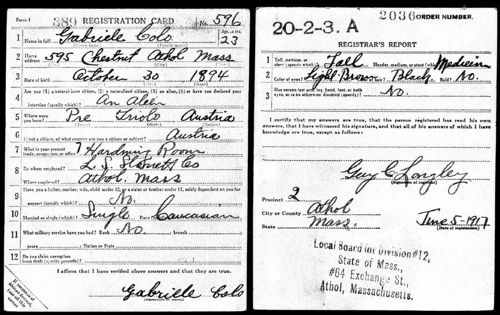 Form 1 389 REGISTRATION CARD No. 596
1 Name in full Gabriele Colo Age, in yrs. 23
2 Home address 595 Chestnut Athol Mass
3 Date of birth October 30 1894
4 Are you (1) a natural-born citizen, (2) a naturalized citizen, (3) an alien, (4) or have you declared your intention (specify which)?
An Alien
5 Where were you born? Pre Austria
6 If not a citizen, of what country are you a citizen or subject? Austria
7 What is your present trade, occupation, or office? 7 Room
8 By whom employed? L. S. Starrett Co
Where employed? Athol, Mass
9 Have you a father, mother, wife, child under 12, or a sister or brother under 12, solely dependent on you for support (specify which)?
No
10 Married or single (which)? Single Race (specify which)? Caucasian
11 What military service have you had? Rank No ; branch
years ; Nation or State
12 Do you claim exemption from draft (specify grounds)?
I affirm that I have verified above answers and that they are true.
Gabriele Colo
20-2-3. A
2036 ORDER NUMBER.
REGISTRAR'S REPORT
1 Tall, medium, or short (specify which)? Tall Slender, medium, or stout (which)? Medium
2 Color of eyes? Light Brown Color of hair? Black Bald? No.
3 Has person lost arm, leg, hand, foot, or both eyes, or is he otherwise disabled (specify)? No.
I certify that my answers are true, that the person registered has read his own answers, that I have witnessed his signature, and that all of his answers of which I have knowledge are true, except as follows:
Guy C Longley
(Signature of registrar)
Precinct 2
City or County Athol
State Mass. June 5-1917
(Date of registration)
Local Board for Division #12,
State of Mass.,
#64 Exchange St.,
Athol, Massachusetts.